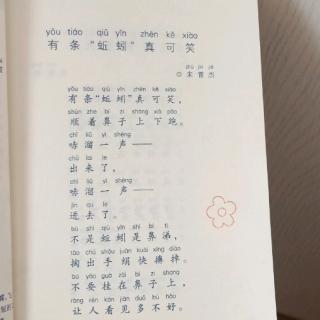 yǒu tiáo qiū yǐn zhēn kě xiào
有条“蚯蚓”真可笑
zhū jìn jié
◎朱晋杰
yǒu tiáo qiū yǐn zhēn kě xiào
有条“蚯蚓”真可笑，
shùn zhe bí zi shàng xià pǎo
顺着鼻子上下跑。
chī liū yì shēng
哧溜一声——
chū lái le
出来了。
chī liū yì shēng
哧溜一声——
jìn qù le
进去了。
bú shì qiū yǐn shì bí tì
不是蚯蚓是鼻涕，
tāo chū shǒu juàn kuài xǐng diào
掏出手绢快擤掉。
bú yào guà zài bí zi shàng
不要挂在鼻子上，
ràng rén kàn jiàn duō bù hǎo
让人看见多不好。